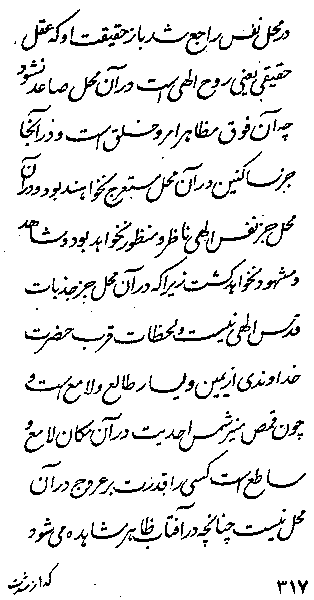 در محل نفس راجع شد باز حقیقت او که عقل
حقیقی یعنی روح الهی است در آن محل صاعد نشود
چه آن فوق مظاهر امر و خلق است و در آنجا
جز ساکنین در آن محل مستعرج نخواهند بود و در آن
محل جز نفس الهی ناظر و منظور نخواهد بود و شاهد
و مشهود نخواهد گشت زیرا که در آن محل جز جذبات
قدس الهی نیست و لحظات قرب حضرت
خداوندی از یمین و یسار طالع و لامع است و
چون قمص منیر شمس احدیت در آن مکان لامع و
ساطع است کسی را قدرت بر عروج در آن
محل نیست چنانچه در آفتاب ظاهر مشاهده می شود
که از
۳۱۷